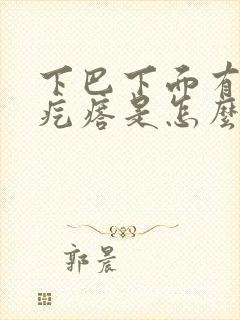 下巴下面有
疙瘩是怎麼
郭晨